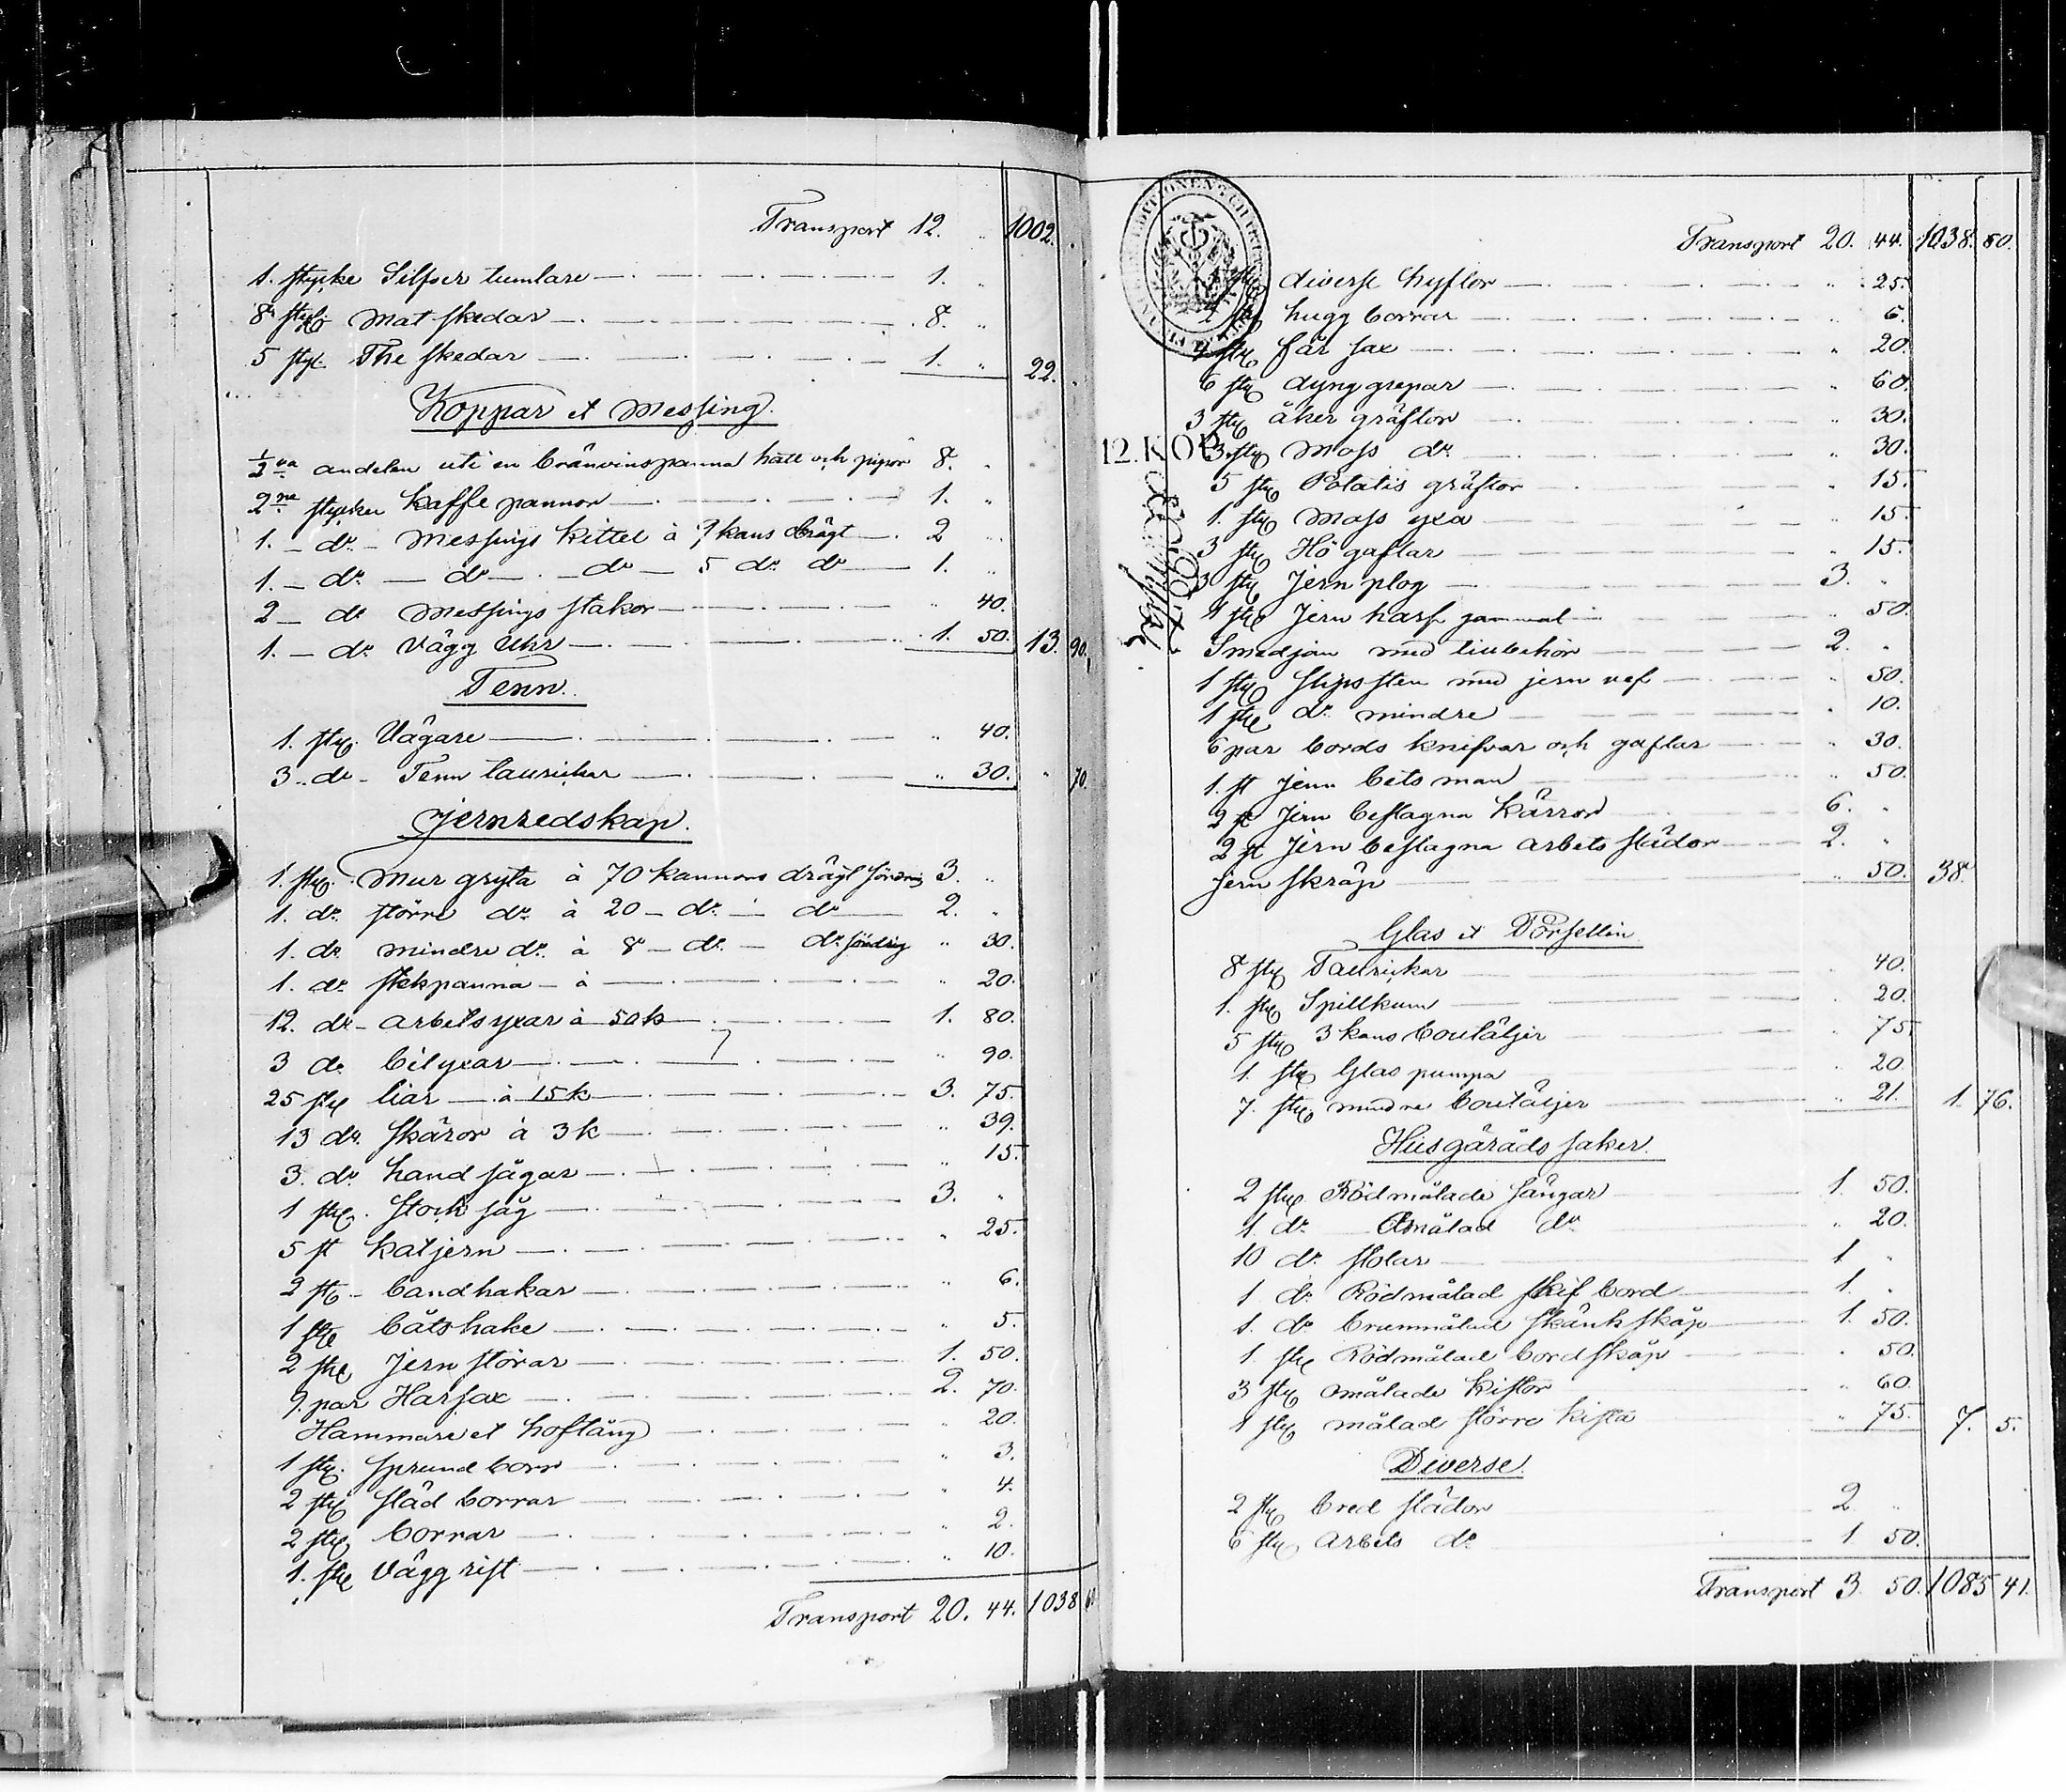 Transport 12. " 1002. "
1. stycke Silfver tumlare — 1. "
8 styk Mat skedar — 8. "
5 styk The skedar — 1. " 22. "
Koppar et Messing.
1/2va andelen uti en bränvinspanna hatt och pipor 8. "
2ne stycken Kaffe pannor — 1. "
1. — do — Messings Kittel à 7 kans drägt — 2 "
1. — do — do — do — 5 do do — 1. "
2 — do Messings stakor — " 40.
1. — do Vägg Uhr — 1. 50. 13. 90.
Tenn.
1. styk Vågare — " 40.
3 — do — Tenn taurickar — " 30. " 70.
Jernredskap.
1. styk Mur gryta à 70 kannors drägt söndrig 3. "
1. do större do à 20 — do — do — 2. "
1. do mindre do à 8 — do — do söndrig " 30.
1. do stekpanna — à — " 20.
12. do — arbetsyxar à 50 k — 1. 80.
3 do bilyxar — " 90.
25 styk liar — à 15 k — 3. 75.
13 do skäror à 3 k — " 39.
3. do hand sågar — " 15.
1 styk. Stock såg — 3. "
5 st katjern — " 25.
2 styk — bandhakar — " 6.
1 styk båtshake — " 5.
2 styk Jern störar — 1. 50.
9. par Harsax — 2. 70.
Hammare et hoftång — " 20.
1 styk. sprund borr — " 3.
2 styk släd borrar — " 4.
2 styk borrar — " 2.
1. styk väggrist — " 10.
Transport 20. 44. 1038
Transport 20. 44. 1038. 60.
styk diverse hyflor — " 25.
styk hugg borrar — " 6.
4 styk får sax — " 20.
6 styk dyng grepar — " 60.
3 styk åker gräftor — " 30.
12. KOP.
3 styk Moss do — " 30.
5 styk Potatis gräftor — " 15.
1. styk Moss yxa — " 15.
3 styk Hö gaflar — " 15.
3 styk Jern plog — 3. "
1 styk Jern harf gammal — " 50.
Smedjan med tiubehör — 2. "
1 styk slipsten med jern vef — " 50.
1 styk do mindre — " 10.
6 par bords knifvar och gaflar — " 30.
1. st Jern betsman — " 50.
2 st Jern beslagna Kärror — 6. "
2 st Jern beslagna arbets slädor — 2. "
Jern skräp — " 50. 38.
Glas et Porsellin
8 styk Taurickar — " 40.
1. styk Spillkum — " 20.
5 styk 3 kans boutäljer — " 75.
1. styk Glas pumpa — " 20.
7. styk mindre boutäljer — " 21. 1. 76.
Husgåråds saker.
2 styk Rödmålade sängar — 1. 50.
1. do Omålad do — " 20.
10 do stolar — 1 "
1 do Rödmålad skif bord — 1. "
1. do brunmålad skänk skåp — 1. 50.
1. styk Rödmålad bordskåp — " 50.
3 styk omålade kistor — " 60.
1 styk målad större kista — " 75. 7. 5.
Diverse.
2 styk bred slädor — 2 "
6 styk arbets do — 1 50.
Transport 3. 50. 1085 41.